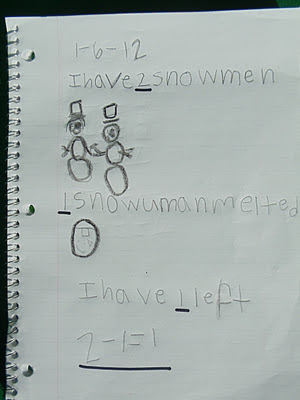 1-6-12
I have 2 snowmen
1 snowuman melted
I have 1 left
2-1=1